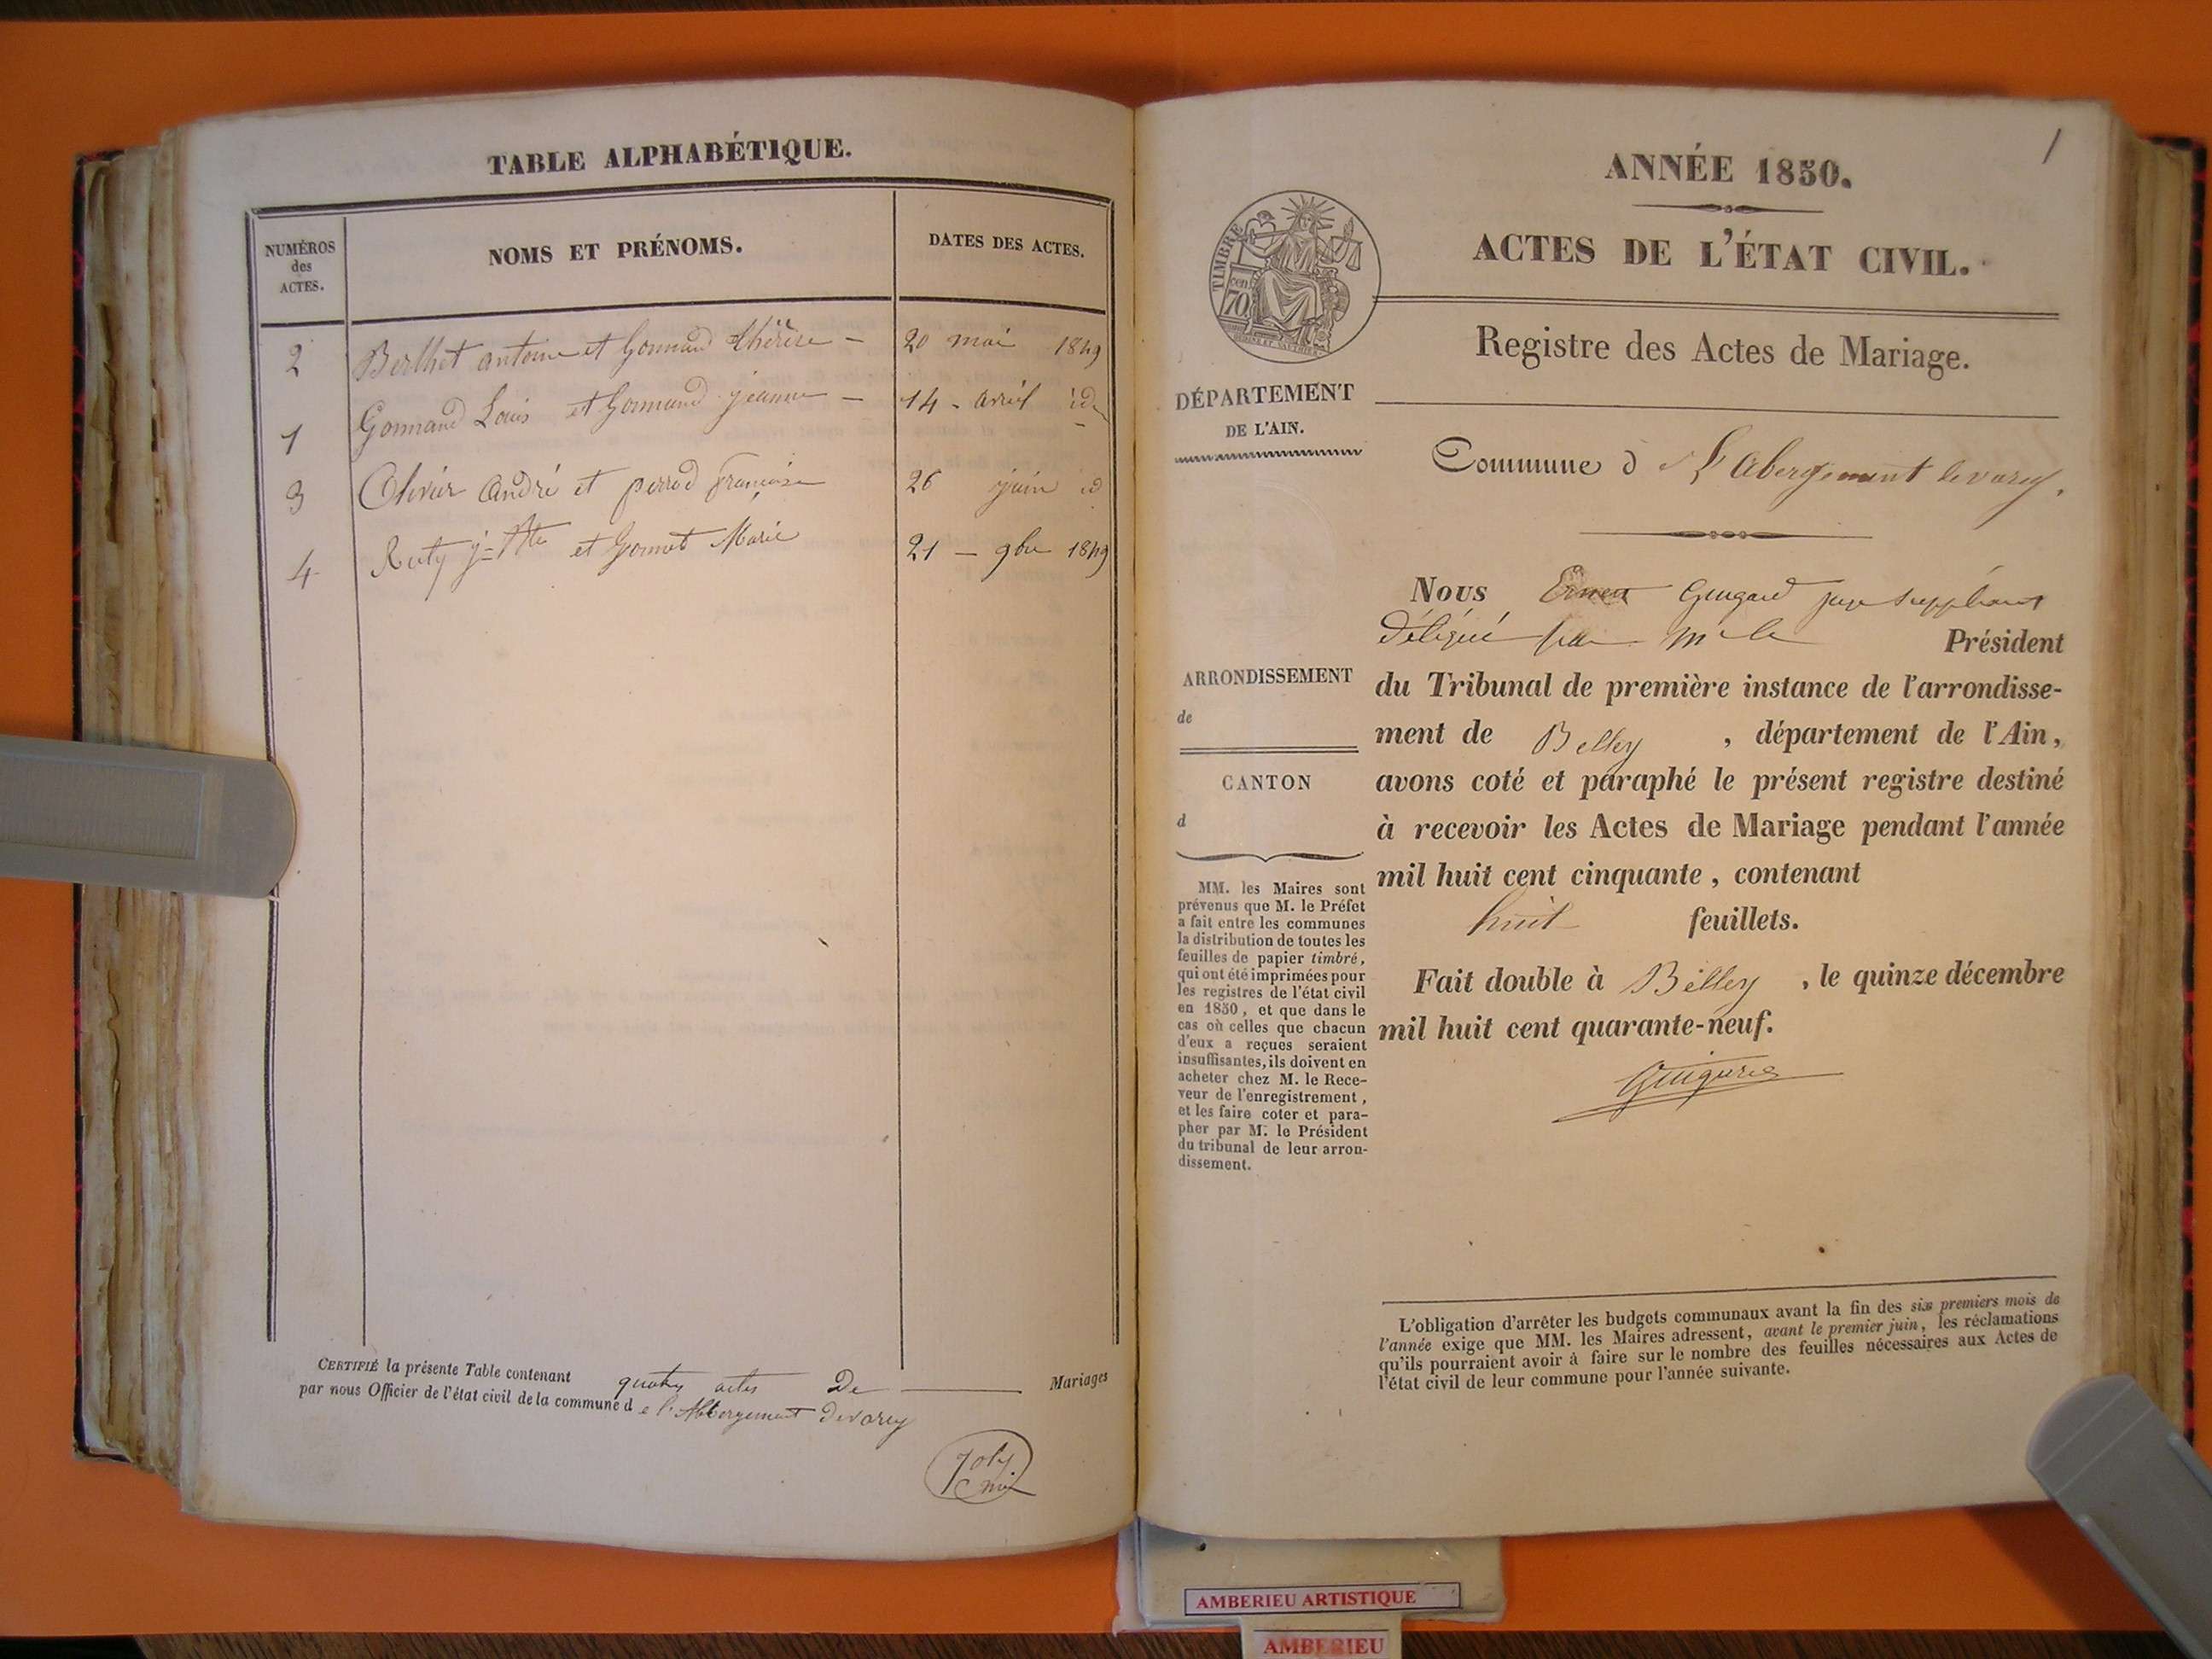 TABLE ALPHABÉTIQUE.
NUMÉROS
des
ACTES.
NOMS ET PRÉNOMS.
DATES DES ACTES.
2 Berthet antoine et Gonnand thérèse - 20 mai 1849
1 Gonnand Louis et Gonnand jeanne - 14 - avril id
3 Olivier André et perrod françoise 26 juin id
4 Ruty j=Bte et Gonnet Marie 21 - 9bre 1849
CERTIFIÉ la présente Table contenant quatre actes De Mariages
par nous Officier de l'état civil de la commune d e l'Abbergement Devarey
Joly
ANNÉE 1850.
1
ACTES DE L'ÉTAT CIVIL.
TIMBRE
cen
70
Registre des Actes de Mariage.
DÉPARTEMENT
DE L'AIN.
Commune d L'Abergement devarey.
Nous juge suppléant
délégué par Mr le Président
ARRONDISSEMENT
de
du Tribunal de première instance de l'arrondisse-
ment de Belley , département de l'Ain,
CANTON
d
avons coté et paraphé le présent registre destiné
à recevoir les Actes de Mariage pendant l'année
mil huit cent cinquante, contenant
huit feuillets.
Fait double à Belley , le quinze décembre
mil huit cent quarante-neuf.
MM. les Maires sont
prévenus que M. le Préfet
a fait entre les communes
la distribution de toutes les
feuilles de papier timbré,
qui ont été imprimées pour
les registres de l'état civil
en 1850, et que dans le
cas où celles que chacun
d'eux a reçues seraient
insuffisantes, ils doivent en
acheter chez M. le Rece-
veur de l'enregistrement,
et les faire coter et para-
pher par M. le Président
du tribunal de leur arron-
dissement.
L'obligation d'arrêter les budgets communaux avant la fin des six premiers mois de
l'année exige que MM. les Maires adressent, avant le premier juin, les réclamations
qu'ils pourraient avoir à faire sur le nombre des feuilles nécessaires aux Actes de
l'état civil de leur commune pour l'année suivante.
AMBERIEU ARTISTIQUE
AMBERIEU